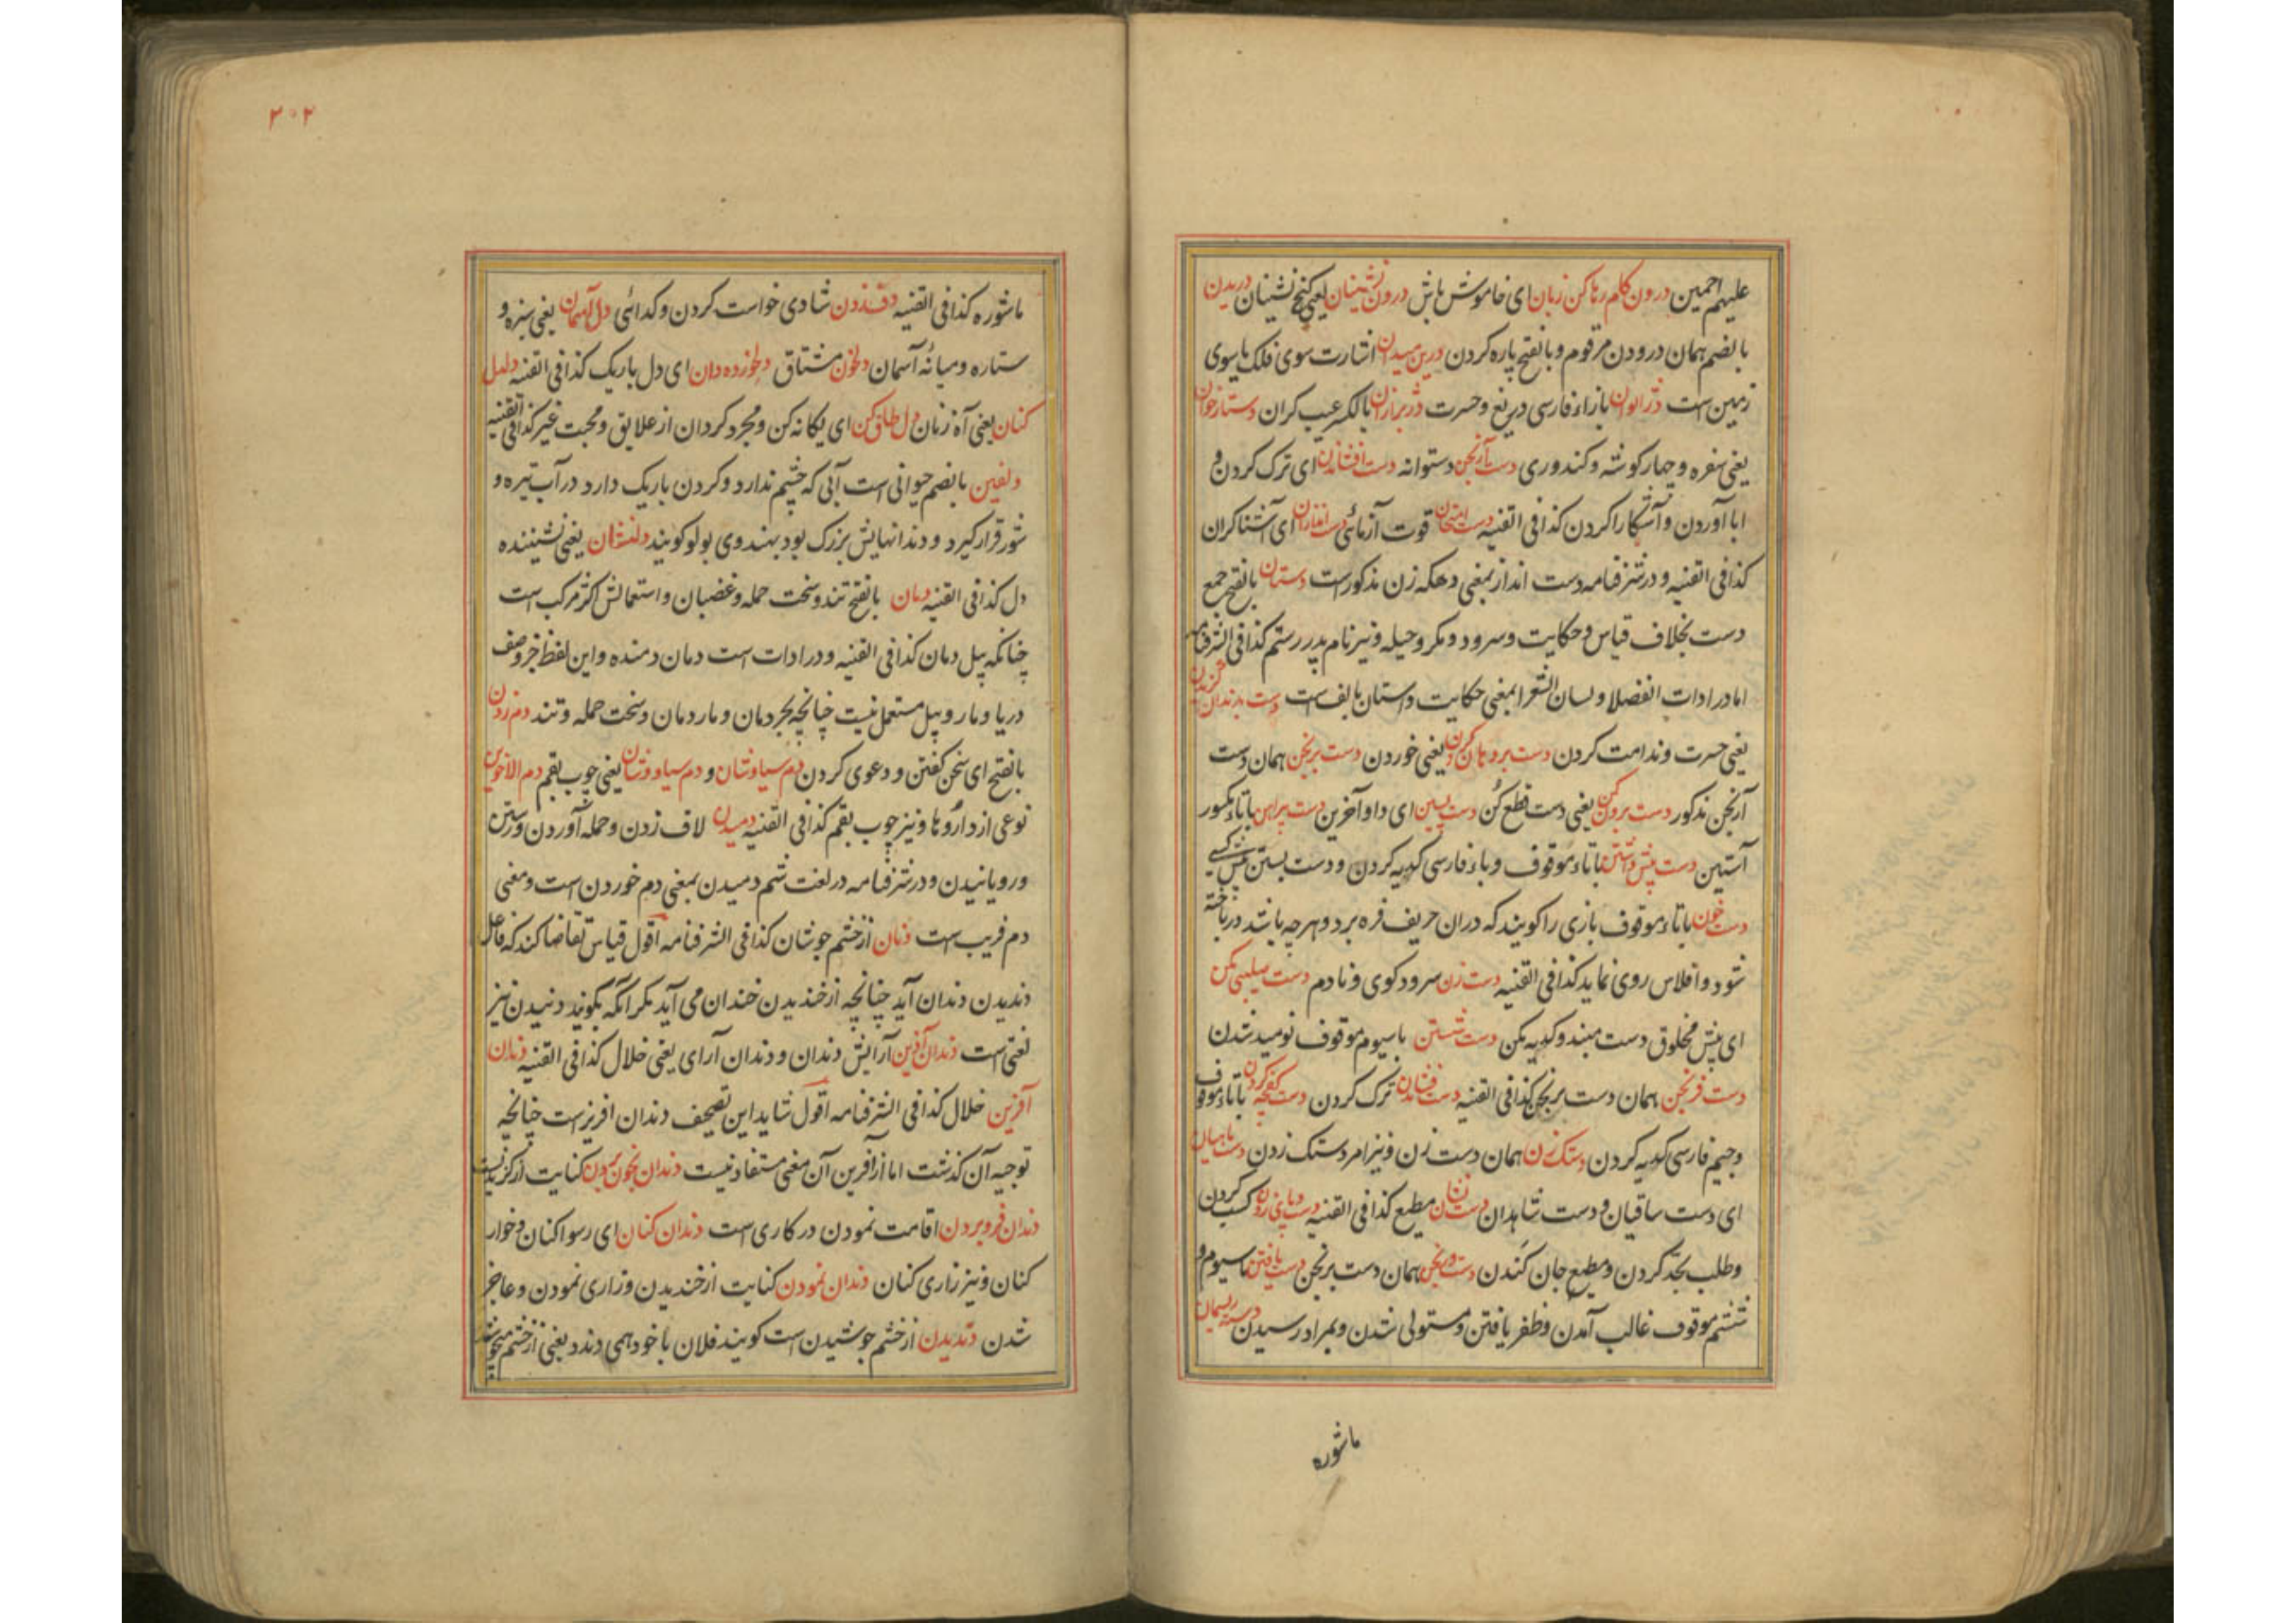 علیهم اجمعین درون کام رها کن زبان ای خاموش باش درون نشینان یعنی کنج نشینان دریدن
بالضم همان درودن مرقوم و بالفتح پاره کردن درین میدان اشارت سوی فلک یا سوی
زمین است بازاء فارسی دریغ و حسرت بالکسر عیب کران دستارخوان
یعنی سفره و چهارکوشه و کندوری دست آرنجن دستوانه دست افشاندن ای ترک کردن و
ابا آوردن و آشکارا کردن کذا فی القنیه دست امتحان قوت آزمائی دست اندازان ای آشناکران
کذا فی القنیه و در شرفنامه دست انداز بمعنی دهکه زن مذکورست دستان بالفتح جمع
دست بخلاف قیاس و حکایت و سرود و مکر و حیله و نیز نام پدر رستم کذا فی الشرفنامه
اما در ادات الفضلا و لسان الشعرا بمعنی حکایت داستان بالف است دست بدندان گزیدن
یعنی حسرت و ندامت کردن دست بر دهان کردن یعنی خوردن دست برنجن همان دست
آرنجن مذکور دست برون کن یعنی دست قطع کن دست پسین ای داو آخرین دست پیراهن باتاء مکسور
آستین دست پیش داشتن باتاء موقوف و باء فارسی کدیه کردن و دست بستن پیش کسی
دست خون باتاء موقوف بازی را کویند که دران حریف فره برد و هرچه باشد در باخته
شود و افلاس روی نماید کذا فی القنیه دست زن سرود کوی و نادم دست صلیبی مکن
ای پیش مخلوق دست مبند و کدیه مکن دست شستن با سیوم موقوف نومید شدن
دست فرنجن همان دست برنجن کذا فی القنیه دست فشاندن ترک کردن دست کفچه کردن باتاء موقوف
وجیم فارسی کدیه کردن دستک زن همان دست زن و نیز امر دستک زدن دست ماهیان
ای دست ساقیان و دست شاهدان مطیع کذا فی القنیه دست و پای زدن کسب کردن
و طلب بجد کردن و مطیع جان کندن دست ورنجن همان دست برنجن دست یافتن باسیوم و
ششم موقوف غالب آمدن و ظفر یافتن و مستولی شدن و بمراد رسیدن دسته ریسمان
ماشوره
۳۰۲
ماشوره کذا فی القنیه دف زدن شادی خواست کردن و کدائی دل آسمان یعنی سبزه و
ستاره و میانه آسمان دلخون مشتاق ای دل باریک کذا فی القنیه دلدل
کنان یعنی آه زنان دل طاق کن ای یکانه کن و مجرد کردان از علایق و محبت غیر کذا فی القنیه
دلفین بالضم حیوانی است آبی که چشم ندارد و کردن باریک دارد در آب تیره و
شور قرار کیرد و دندانهایش بزرگ بود بهندوی بولو کویند دلنشان یعنی نشیننده
دل کذا فی القنیه دمان بالفتح تند و سخت حمله و غضبان و استعمالش اکثر مرکب است
چنانکه پیل دمان کذا فی القنیه و در ادات است دمان دمنده و این لفظ جز وصف
دریا و مار و پیل مستعمل نیست چنانچه بحر دمان و مار دمان و سخت حمله و تند دم زدن
بالفتح ای سخن کفتن و دعوی کردن دم سیاوشان و دم سیاووشان یعنی چوب بقم دم الاخوین
نوعی از داروها و نیز چوب بقم کذا فی القنیه دمیدن لاف زدن و حمله آوردن و رستن
و رویانیدن و در شرفنامه در لغت شم دمیدن بمعنی دم خوردن است و معنی
دم فریب است دنان از خشم جوشان کذا فی الشرفنامه اقول قیاس تقاضا کند که فاعل
دندیدن دندان آید چنانچه از خندیدن خندان می آید مکر آنکه بکویند دنیدن نیز
لغتی است دندان آذین آرایش دندان و دندان آرای یعنی خلال کذا فی القنیه دندان
آفرین خلال کذا فی الشرفنامه اقول شاید این تصحیف دندان افریز است چنانچه
توجیه آن کذشت اما از آفرین آن معنی مستفاد نیست دندان بخون بردن کنایت از کزیدنست
دندان فرو بردن اقامت نمودن در کاری است دندان کنان ای رسوا کنان و خوار
کنان و نیز زاری کنان دندان نمودن کنایت از خندیدن و زاری نمودن و عاجز
شدن دندیدن از خشم جوشیدن است کویند فلان با خود همی دندد یعنی از خشم میجوشد